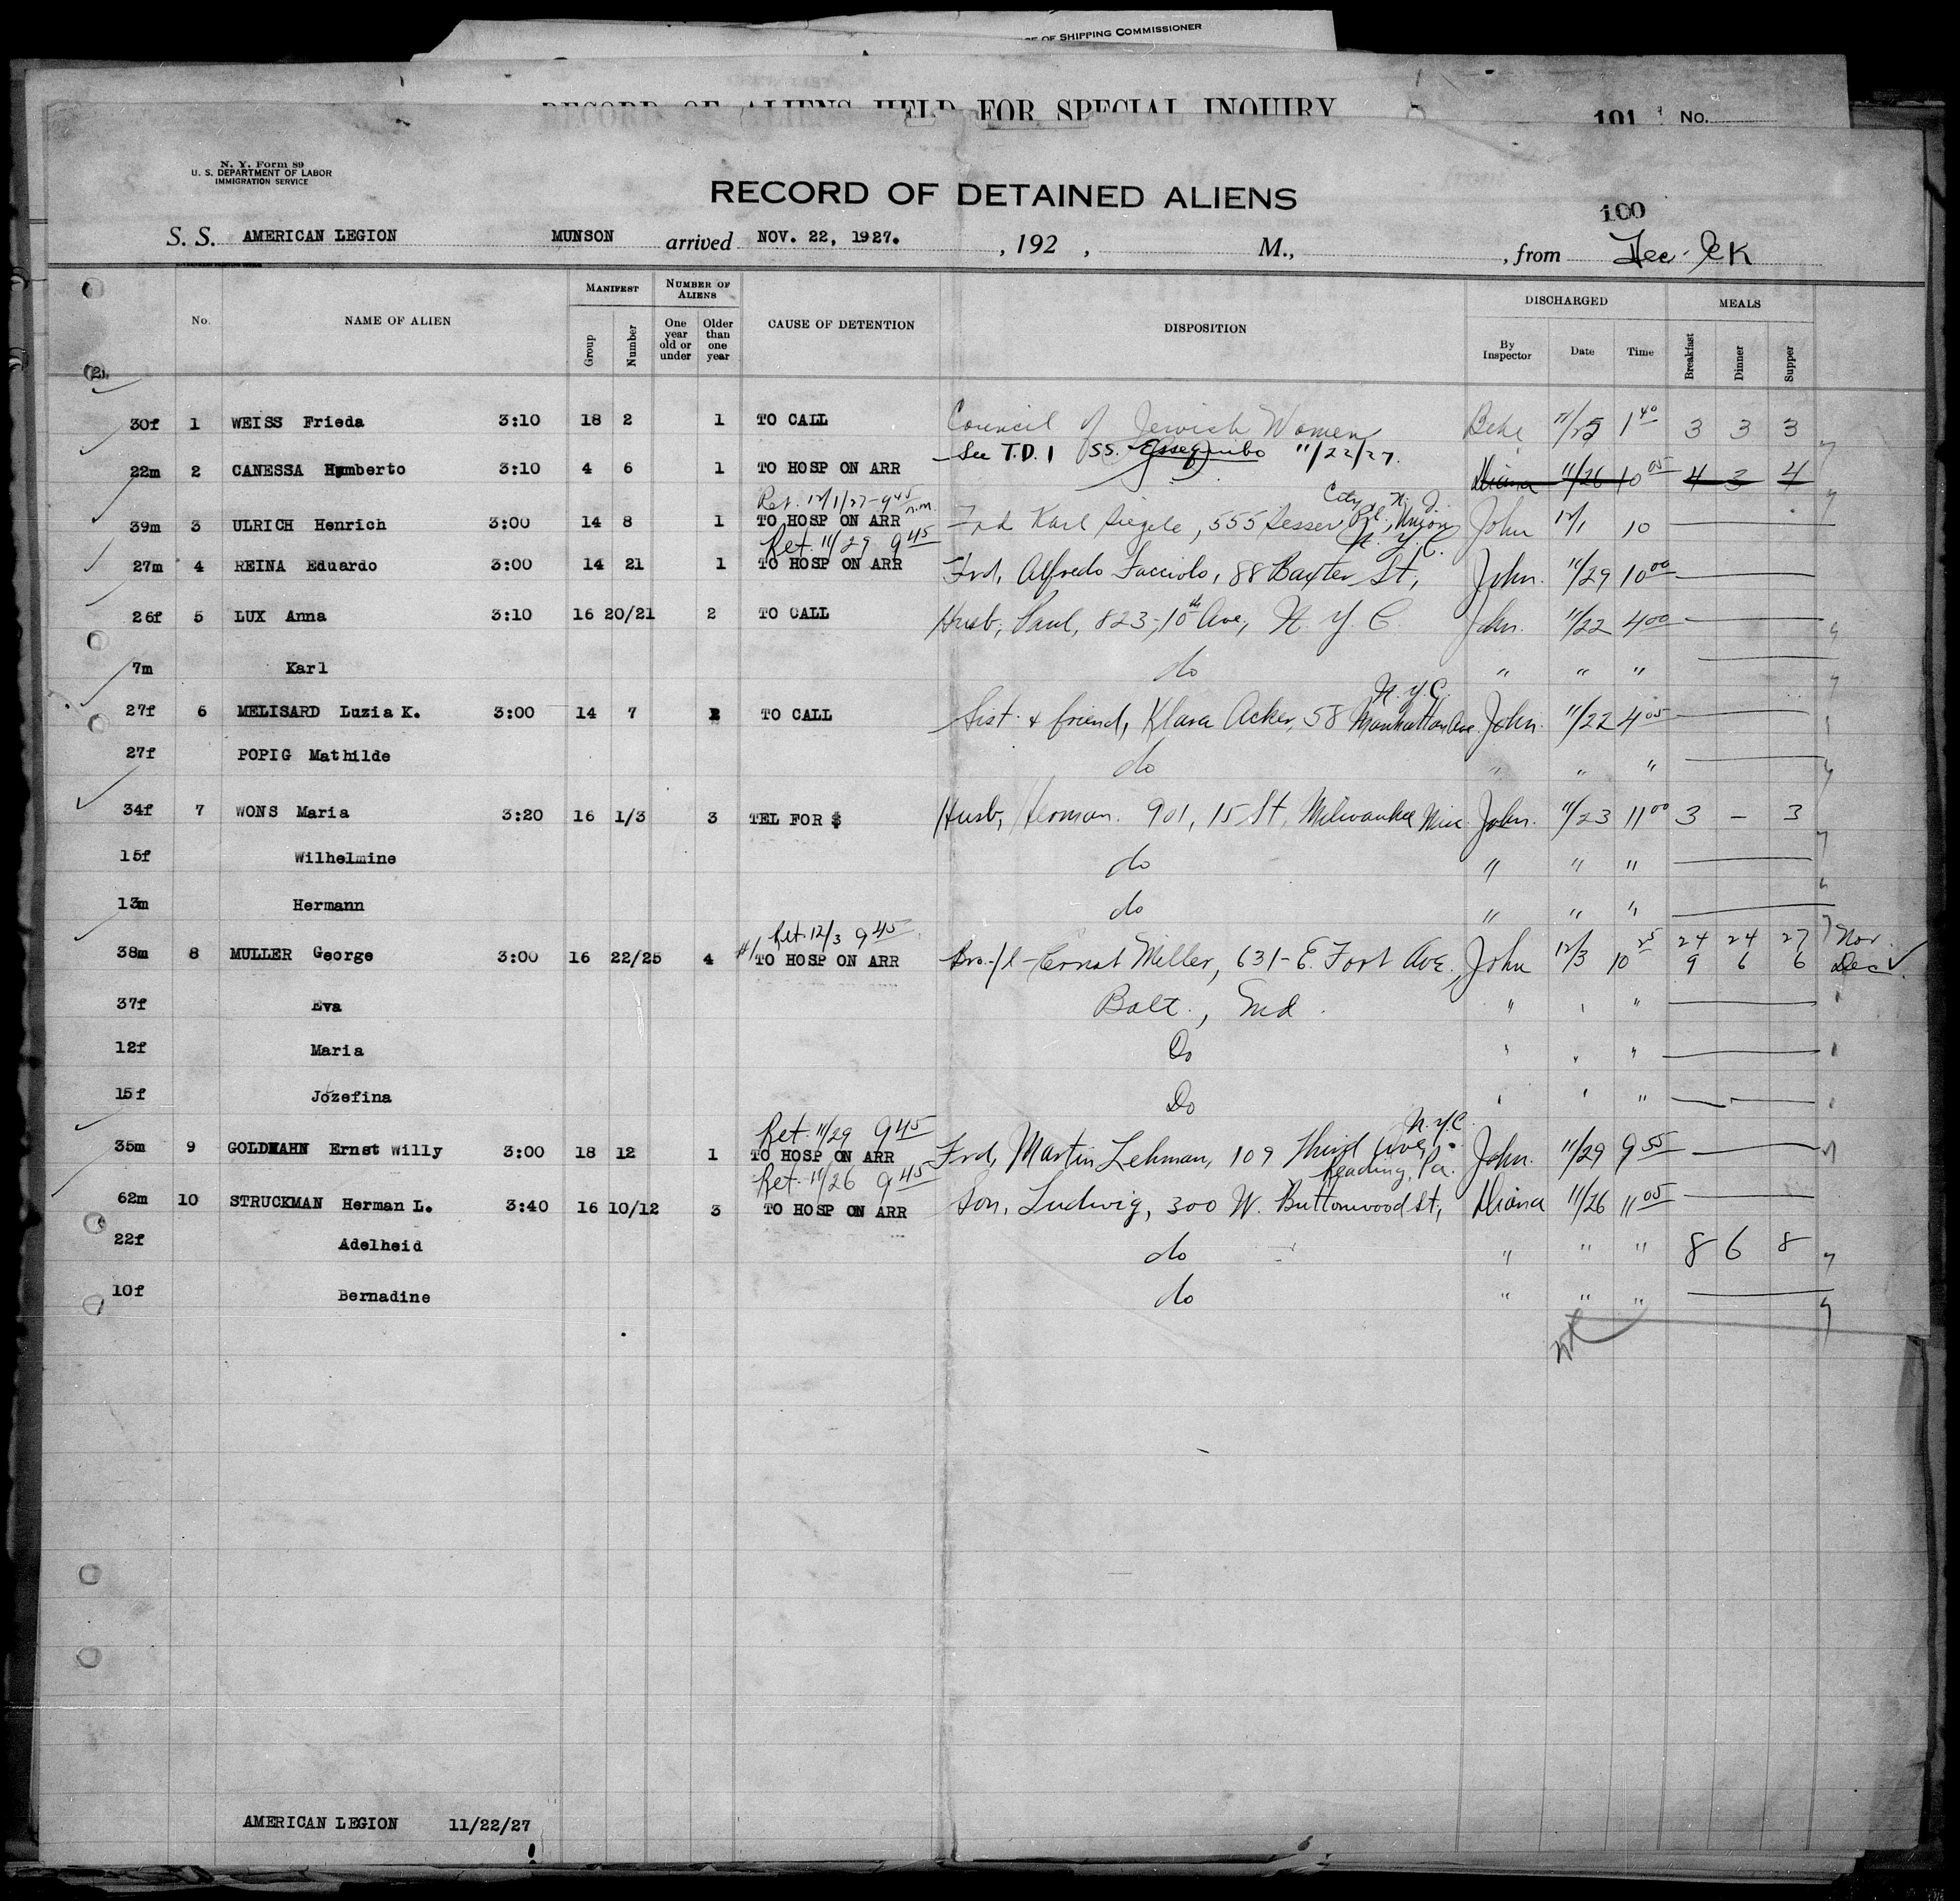 OF SHIPPING COMMISSIONER
RECORD OF ALIENS HELD FOR SPECIAL INQUIRY 101 No.
N. Y. Form 89
U. S. DEPARTMENT OF LABOR
IMMIGRATION SERVICE
RECORD OF DETAINED ALIENS
100
S. S. AMERICAN LEGION MUNSON arrived NOV. 22, 1927. , 192 , M., , from
No. NAME OF ALIEN MANIFEST Group Number NUMBER OF ALIENS One year old or under Older than one year CAUSE OF DETENTION DISPOSITION DISCHARGED By Inspector Date Time MEALS Breakfast Dinner Supper
(2)
30f 1 WEISS Frieda 3:10 18 2 1 TO CALL Council of Jewish Women 11/25 1 40 3 3 3
See T.D. 1 SS. Essequibo 11/22/27.
22m 2 CANESSA Humberto 3:10 4 6 1 TO HOSP ON ARR Diana 11/26 10 05 4 3 4
Ret. 12/1/27 - 9 45 City, N. J.
39m 3 ULRICH Henrich 3:00 14 8 1 TO HOSP ON ARR Frd Karl Siegele, 555 Pl., Union John 12/1 10
Ret. 11/29 9 45 N. Y. C.
27m 4 REINA Eduardo 3:00 14 21 1 TO HOSP ON ARR Frd, Alfredo Facciolo, 88 Baxter St, John. 11/29 10 00
26f 5 LUX Anna 3:10 16 20/21 2 TO CALL Husb, Paul, 823, 10th Ave, N. Y. C John. 11/22 4 00
7m Karl do " " "
N. Y. C.
27f 6 MELISARD Luzia K. 3:00 14 7 2 TO CALL Sist. & friend, Klara Acker, 58 Manhattan Ave. John. 11/22 4 05
27f POPIG Mathilde do " " "
34f 7 WONS Maria 3:20 16 1/3 3 TEL FOR $ Husb, Herman. 901, 15 St, Milwaukee John. 11/23 11 00 3 - 3
15f Wilhelmine do " " "
13m Hermann do " " "
Ret. 12/3 9 45
38m 8 MULLER George 3:00 16 22/25 4 #1 TO HOSP ON ARR Bro-/l - Ernst Miller, 631 - E. Fort Ave., John 12/3 10 25 24 24 27 Nor.
9 6 6 Dec
37f Eva Balt., Md. " ' "
12f Maria Do ' " "
15f Jozefina Do ' ' "
Ret. 11/29 9 45 N. Y. C.
35m 9 GOLDMAHN Ernst Willy 3:00 18 12 1 TO HOSP ON ARR Frd, Martin Lehman, 109 Third Ave, John. 11/29 9 55
Ret. 11/26 9 45 Reading, Pa.
62m 10 STRUCKMAN Herman L. 3:40 16 10/12 3 TO HOSP ON ARR Son, Ludwig, 300 W. Buttonwood St, Diana 11/26 11 05
22f Adelheid do " " " 8 6 8
10f Bernadine do " " "
AMERICAN LEGION 11/22/27